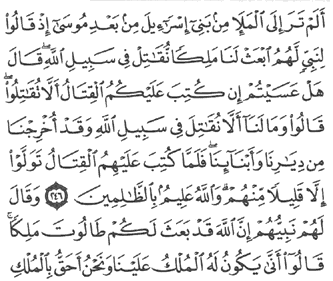 أَلَمْ تَرَ إِلَى ٱلْمَلَإِ مِنۢ بَنِىٓ إِسْرَٰٓءِيلَ مِنۢ بَعْدِ مُوسَىٰٓ إِذْ قَالُوا۟
لِنَبِىٍّ لَّهُمُ ٱبْعَثْ لَنَا مَلِكًا نُّقَٰتِلْ فِى سَبِيلِ ٱللَّهِ ۖ قَالَ
هَلْ عَسَيْتُمْ إِن كُتِبَ عَلَيْكُمُ ٱلْقِتَالُ أَلَّا تُقَٰتِلُوا۟ ۖ
قَالُوا۟ وَمَا لَنَآ أَلَّا نُقَٰتِلَ فِى سَبِيلِ ٱللَّهِ وَقَدْ أُخْرِجْنَا
مِن دِيَٰرِنَا وَأَبْنَآئِنَا ۖ فَلَمَّا كُتِبَ عَلَيْهِمُ ٱلْقِتَالُ تَوَلَّوْا۟
إِلَّا قَلِيلًا مِّنْهُمْ ۗ وَٱللَّهُ عَلِيمٌۢ بِٱلظَّٰلِمِينَ ٢٤٦ وَقَالَ
لَهُمْ نَبِيُّهُمْ إِنَّ ٱللَّهَ قَدْ بَعَثَ لَكُمْ طَالُوتَ مَلِكًا ۚ
قَالُوٓا۟ أَنَّىٰ يَكُونُ لَهُ ٱلْمُلْكُ عَلَيْنَا وَنَحْنُ أَحَقُّ بِٱلْمُلْكِ